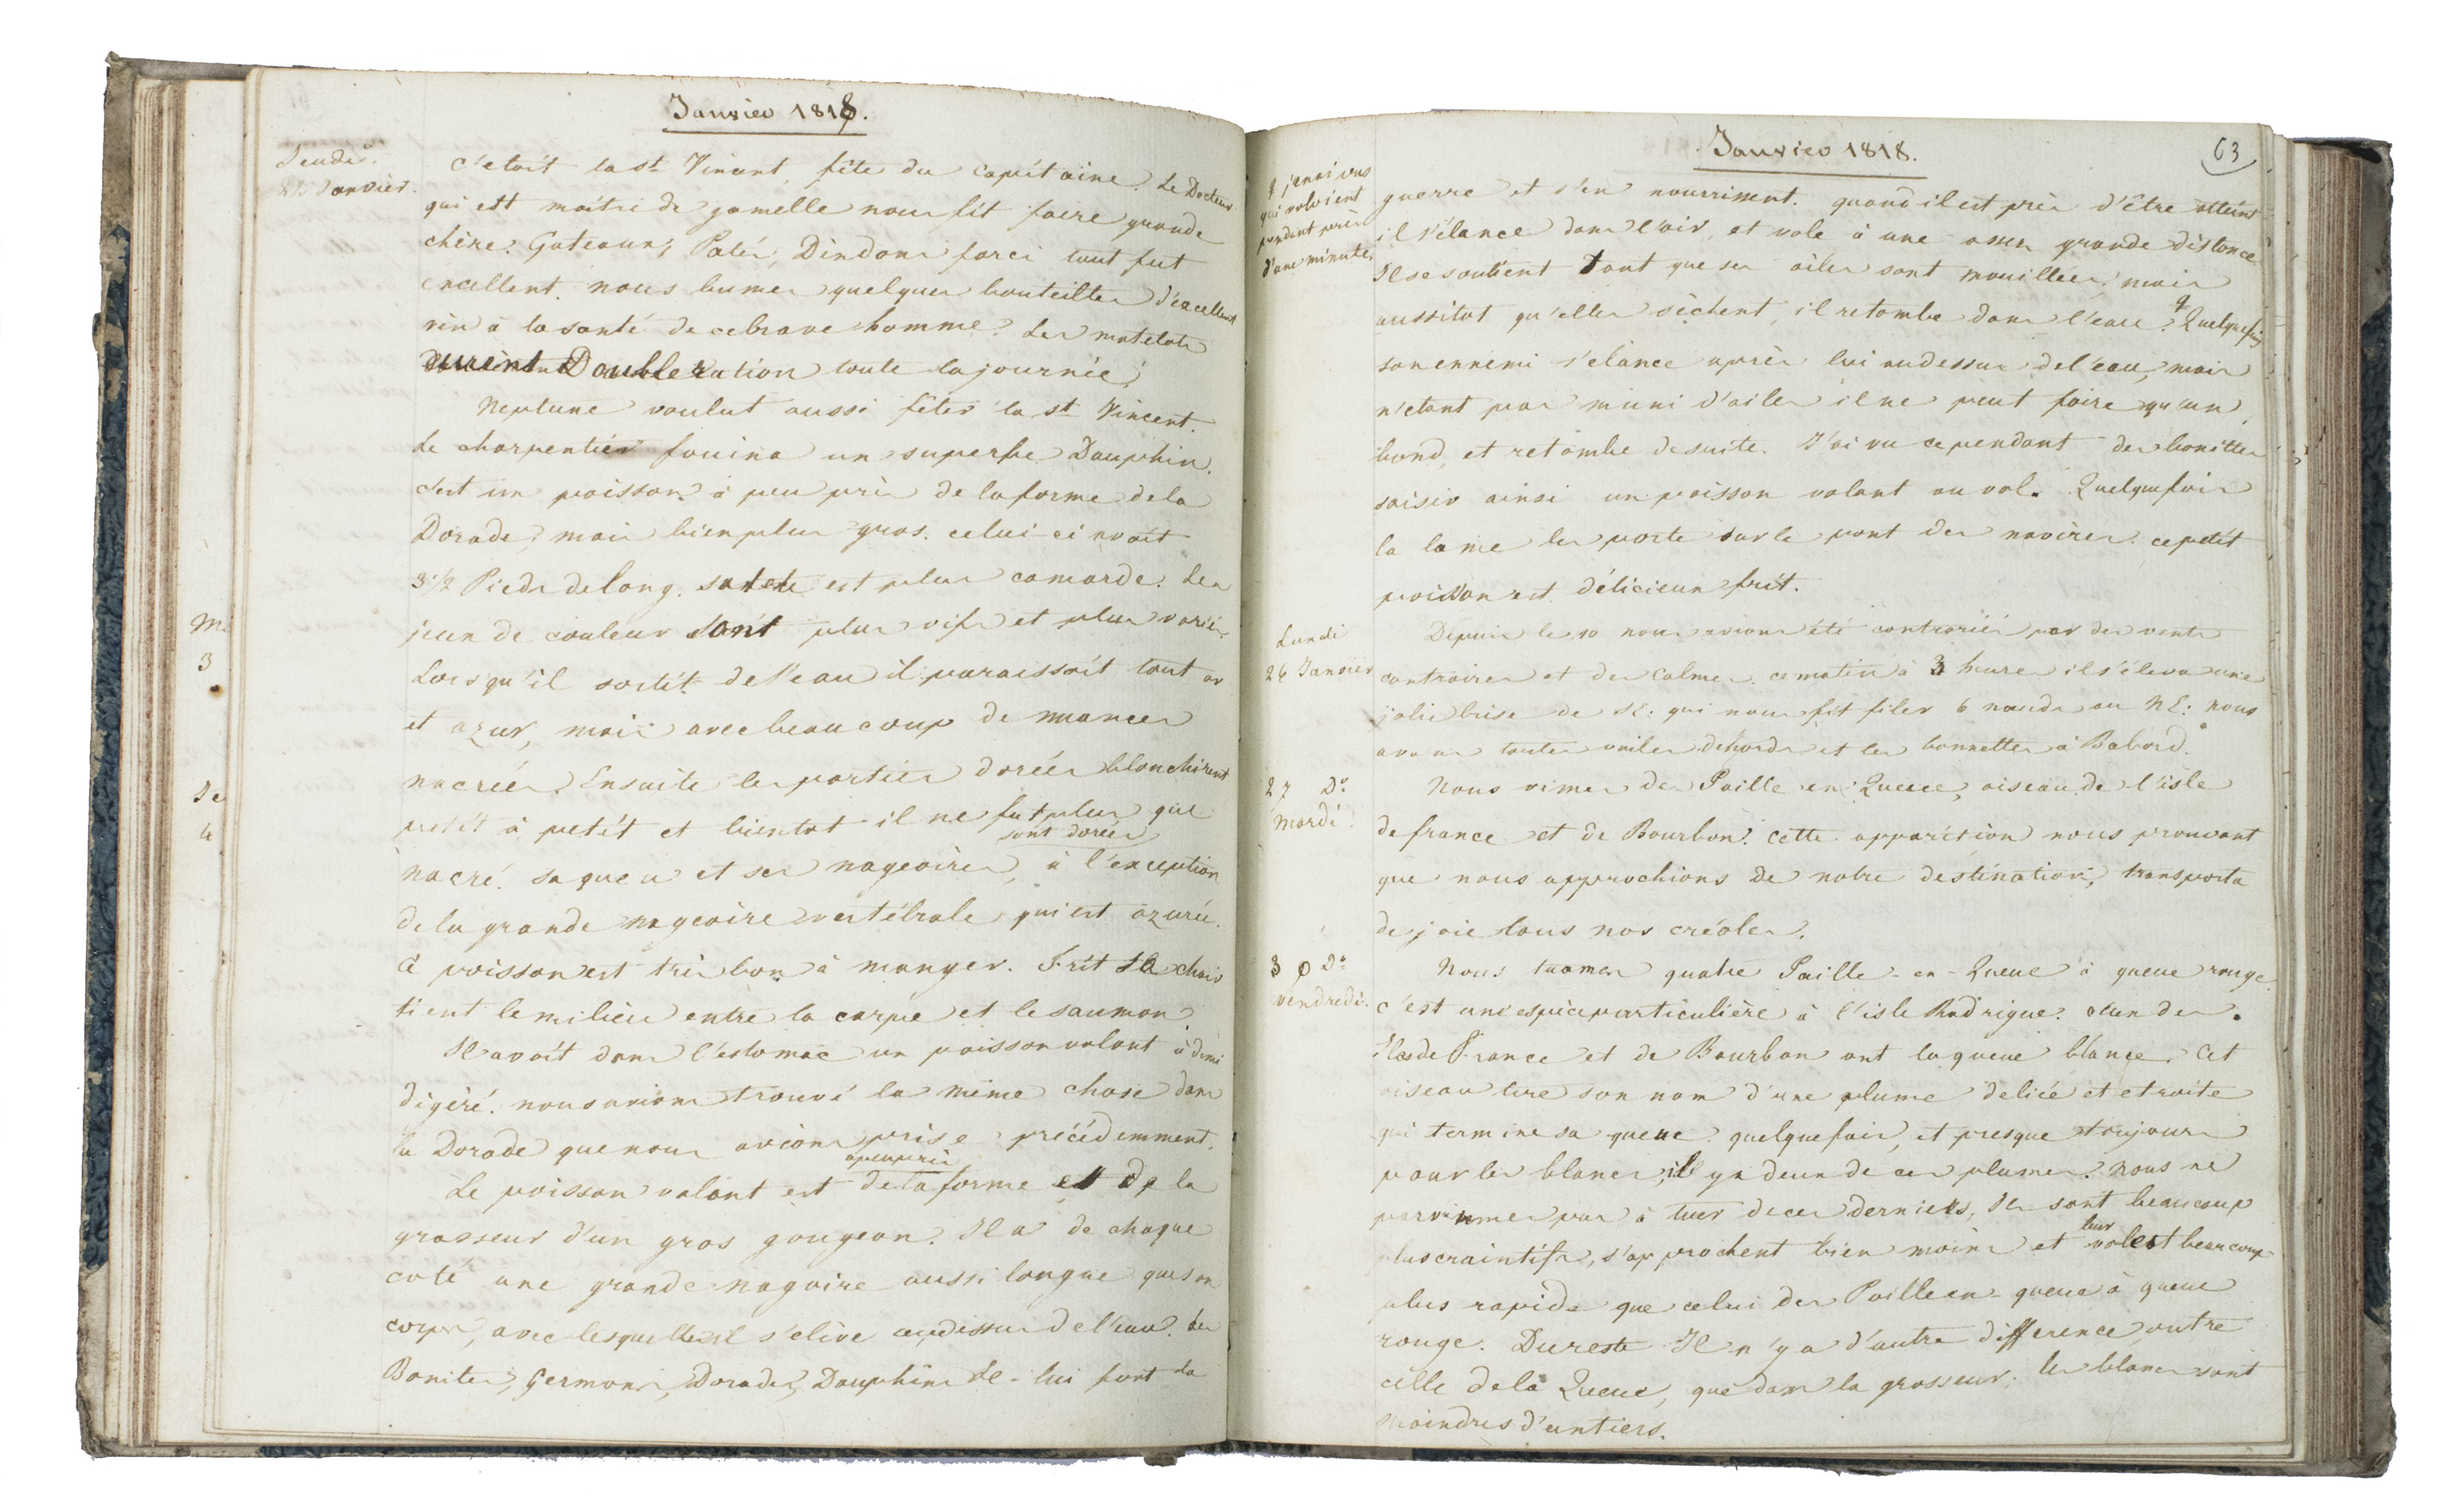 Janvier 1818.
Jeudi
22 Janvier.
c'etoit la st Vincent, fête du Capitaine. Le Docteur
qui est maitre de gamelle nous fit faire grande
chère. Gateaux, Patés, Dindons farci tout fut
excellent. nous bumes quelques bouteilles d'excellent
vin à la santé de ce brave homme. Les matelots
eurent Double Ration toute la journée.
Neptune voulut aussi fêter la st Vincent.
Le charpentier fouina un superbe Dauphin.
C'est un poisson à peu près de la forme de la
Dorade, mais bien plus gros. celui-ci avoit
3 1/2 Pieds de long. sa tete est plus camarde. Les
jeux de couleur sont plus vifs et plus variés.
Lorsqu'il sortit de l'eau il paraissoit tout or
et azur, mais avec beaucoup de nuances
nacrées. Ensuite les parties dorées blanchirent
petit à petit et bientot il ne fut plus que
nacré. sa queue et ses nageoires sont dorées, à l'exception
de la grande nageoire vertébrale qui est azurée.
Ce poisson est très bon à manger. Frit sa chair
tient le milieu entre la carpe et le saumon.
Il avoit dans l'estomac un poisson volant à demi
digéré. nous avions trouvé la même chose dans
la Dorade que nous avions prise précédemment.
Le poisson volant est apeuprès de la forme et de la
grosseur d'un gros goujeon. Il a de chaque
coté une grande nagoire aussi longue que son
corps, avec lesquelles il s'elève au dessus de l'eau. Les
Bonites, Germons, Dorades, Dauphins &c. lui font la
M
3
Je
4
Janvier 1818.
63
j'en ai vus
qui voloient
pendant près
d'une minute.
guerre et s'en nourrissent. quand il est près d'être atteint
il s'élance dans l'air, et vole à une assez grande distance
Il se soutient tant que ses ailes sont mouillées, mais
aussitot qu'elles sèchent, il retombe dans l'eau. Quelquefois
son ennemi s'élance après lui au dessus de l'eau, mais
n'etant pas muni d'ailes il ne peut faire qu'un
bond, et retombe de suite. J'ai vu cependant des bonittes
saisir ainsi un poisson volant au vol. Quelquefois
la lame les porte sur le pont des navires. ce petit
poisson est délicieux frit.
Lundi
26 Janvier
Depuis le 10 nous avions été contrariés par des vents
contraires et des Calmes. ce matin à 3 heures il s'éleva une
jolie brise de SE: qui nous fit filer 6 nœuds au NE: nous
avons toutes voiles dehords et les bonnettes à Babord.
27 Do
Mardi.
Nous vimes des Paille en Queue, oiseau de l'isle
de france et de Bourbon. Cette apparition nous prouvant
que nous approchions de notre destination, transporta
de joie tous nos créoles.
30 Do
Vendredi.
Nous tuames quatre Paille-en-Queue à queue rouge.
c'est une espèce particulière à l'isle Rodrigue. Ceux des
Iles de France et de Bourbon ont la queue blanche. Cet
oiseau tire son nom d'une plume deliée et etroite
qui termine sa queue. quelquefois, et presque toujours
pour les blancs, il y a deux de ces plumes. Nous ne
parvinmes pas à tuer de ces derniers, Ils sont beaucoup
plus craintifs, s'approchent bien moins et leur vol est beaucoup
plus rapide que celui des Paille en queue à queue
rouge. Dureste Il n'y a d'autre difference, outre
celle de la Queue, que dans la grosseur; les blancs sont
moindres d'un tiers.